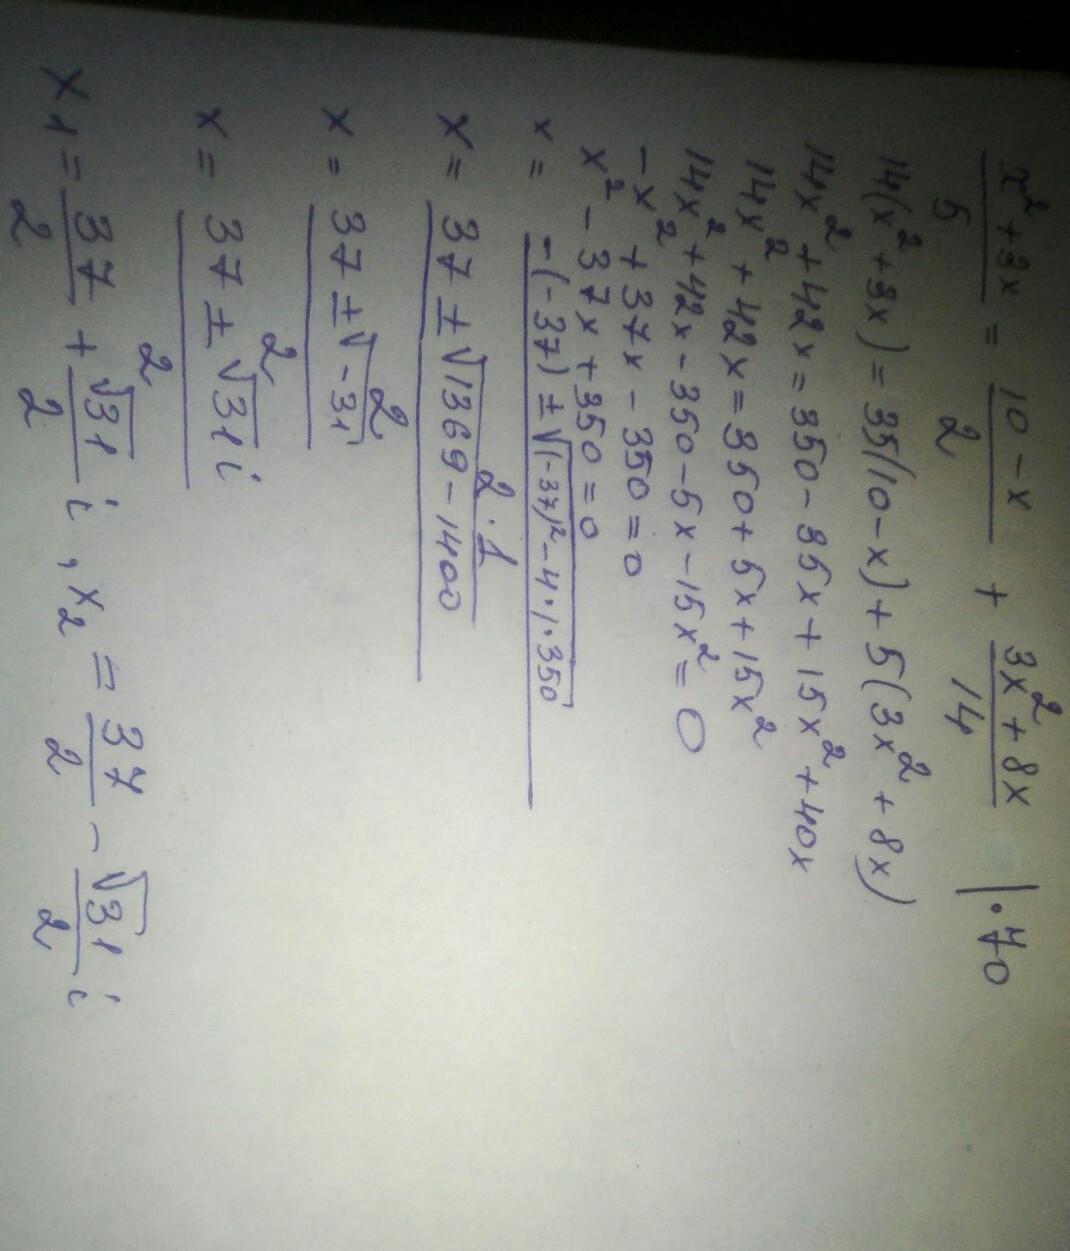 (x²+3x)/5 = (10-x)/2 + (3x²+8x)/14 |·70
14(x²+3x) = 35(10-x) + 5(3x²+8x)
14x²+42x = 350-35x+15x²+40x
14x²+42x = 350+5x+15x²
14x²+42x-350-5x-15x² = 0
-x²+37x-350 = 0
x²-37x+350 = 0
x = (-(-37)±√((-37)²-4·1·350))/(2·1)
x = (37±√(1369-1400))/2
x = (37±√(-31))/2
x = (37±√31 i)/2
x₁ = 37/2 + √31/2 i, x₂ = 37/2 - √31/2 i